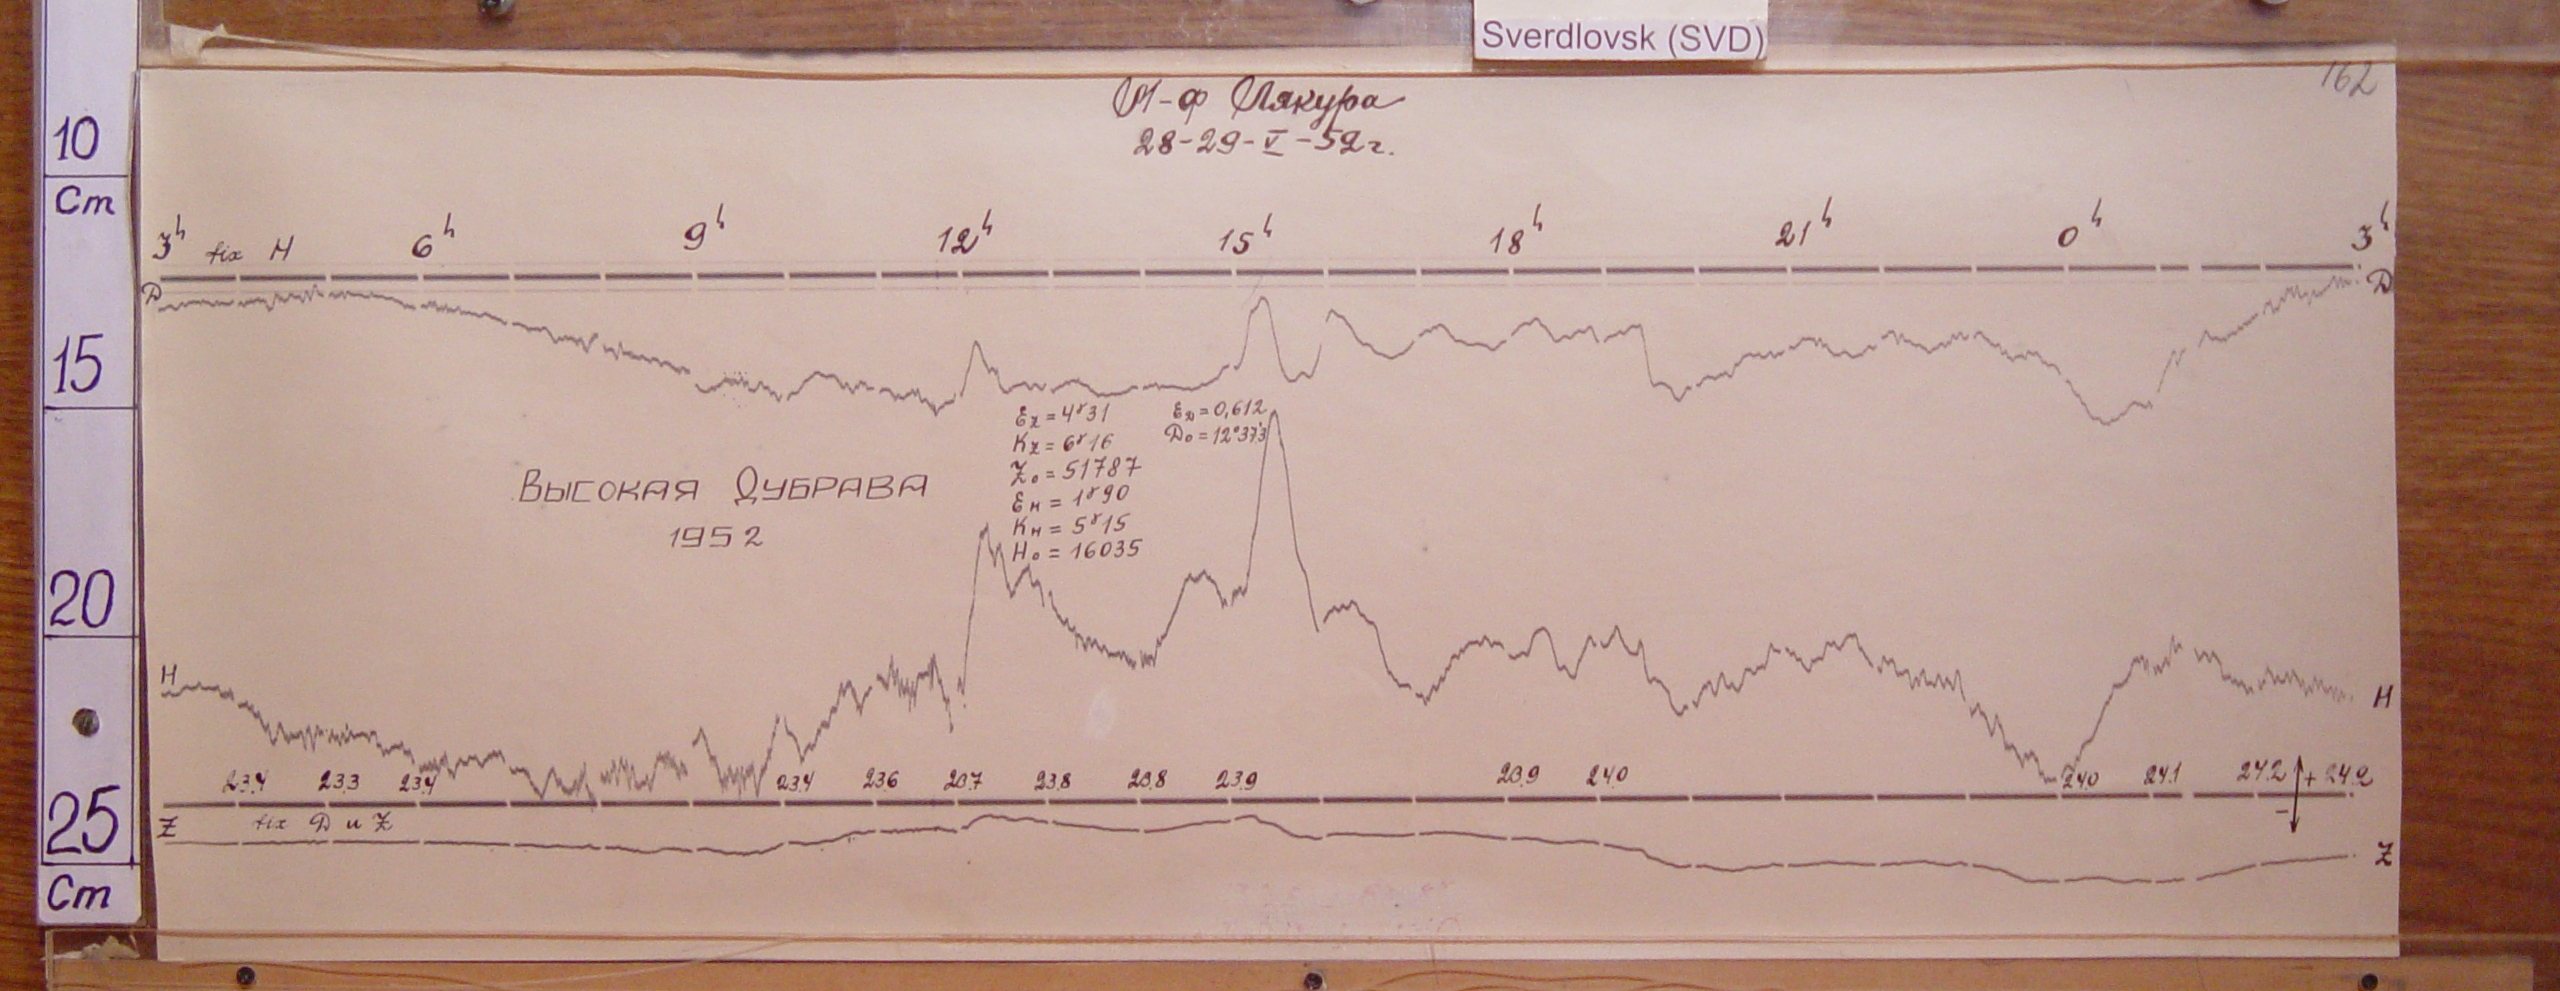 Sverdlovsk (SVD)
162
М-ф Якура
28-29-V-52г.
10
Cm
15
20
25
Cm
3h fix H 6h 9h 12h 15h 18h 21h 0h 3h
D D
Ez = 4γ31
Kz = 6γ16
Z₀ = 51787
Eн = 1γ90
Kн = 5γ15
H₀ = 16035
ED = 0,612
D₀ = 12°37,3'
Высокая Дубрава
1952
H H
23.4 23.3 23.4 23.4 23.6 23.7 23.8 23.8 23.9 23.9 24.0 24.0 24.1 24.2 + 24.2
−
Z fix D и Z Z